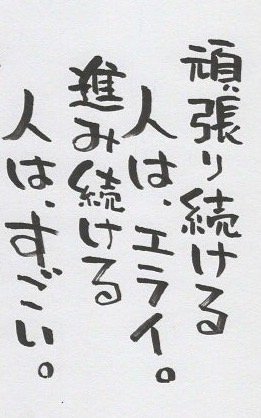 頑張り続ける
人は、エライ。
進み続ける
人は、すごい。